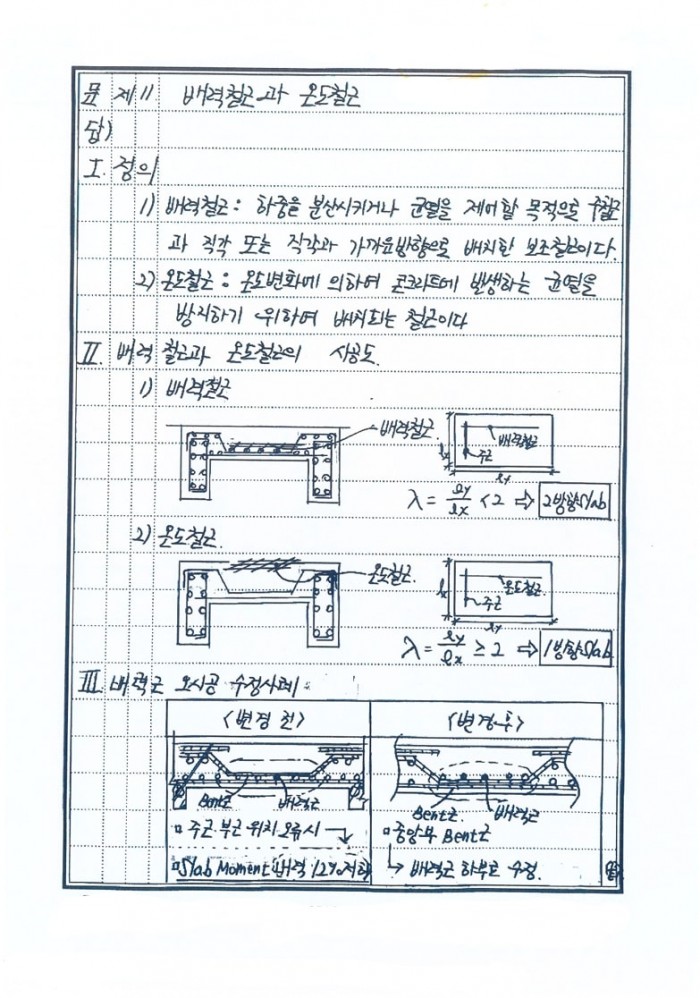 문 제 11 배력철근과 온도철근
답)
I. 정의
1) 배력철근 : 하중을 분산시키거나 균열을 제어할 목적으로 주철근
과 직각 또는 직각과 가까운방향으로 배치한 보조철근이다.
2) 온도철근 : 온도변화에 의하여 콘크리트에 발생하는 균열을
방지하기 위하여 배치되는 철근이다
II. 배력 철근과 온도철근의 시공도.
1) 배력철근
배력철근.
배력철근
주근
lx
ly
λ = ly/lx < 2 ⇒ 2방향Slab
2) 온도철근.
온도철근.
온도철근
주근
lx
ly
λ = ly/lx ≥ 2 ⇒ 1방향Slab
III. 배력근 오시공 수정사례
<변경 전>
<변경 후>
Bent근 배력근
Bent근 배력근
□ 주근.부근 위치 오류시
□ Slab Moment 내력 12% 저하
□ 중앙부 Bent근
→ 배력근 하부로 수정.
끝